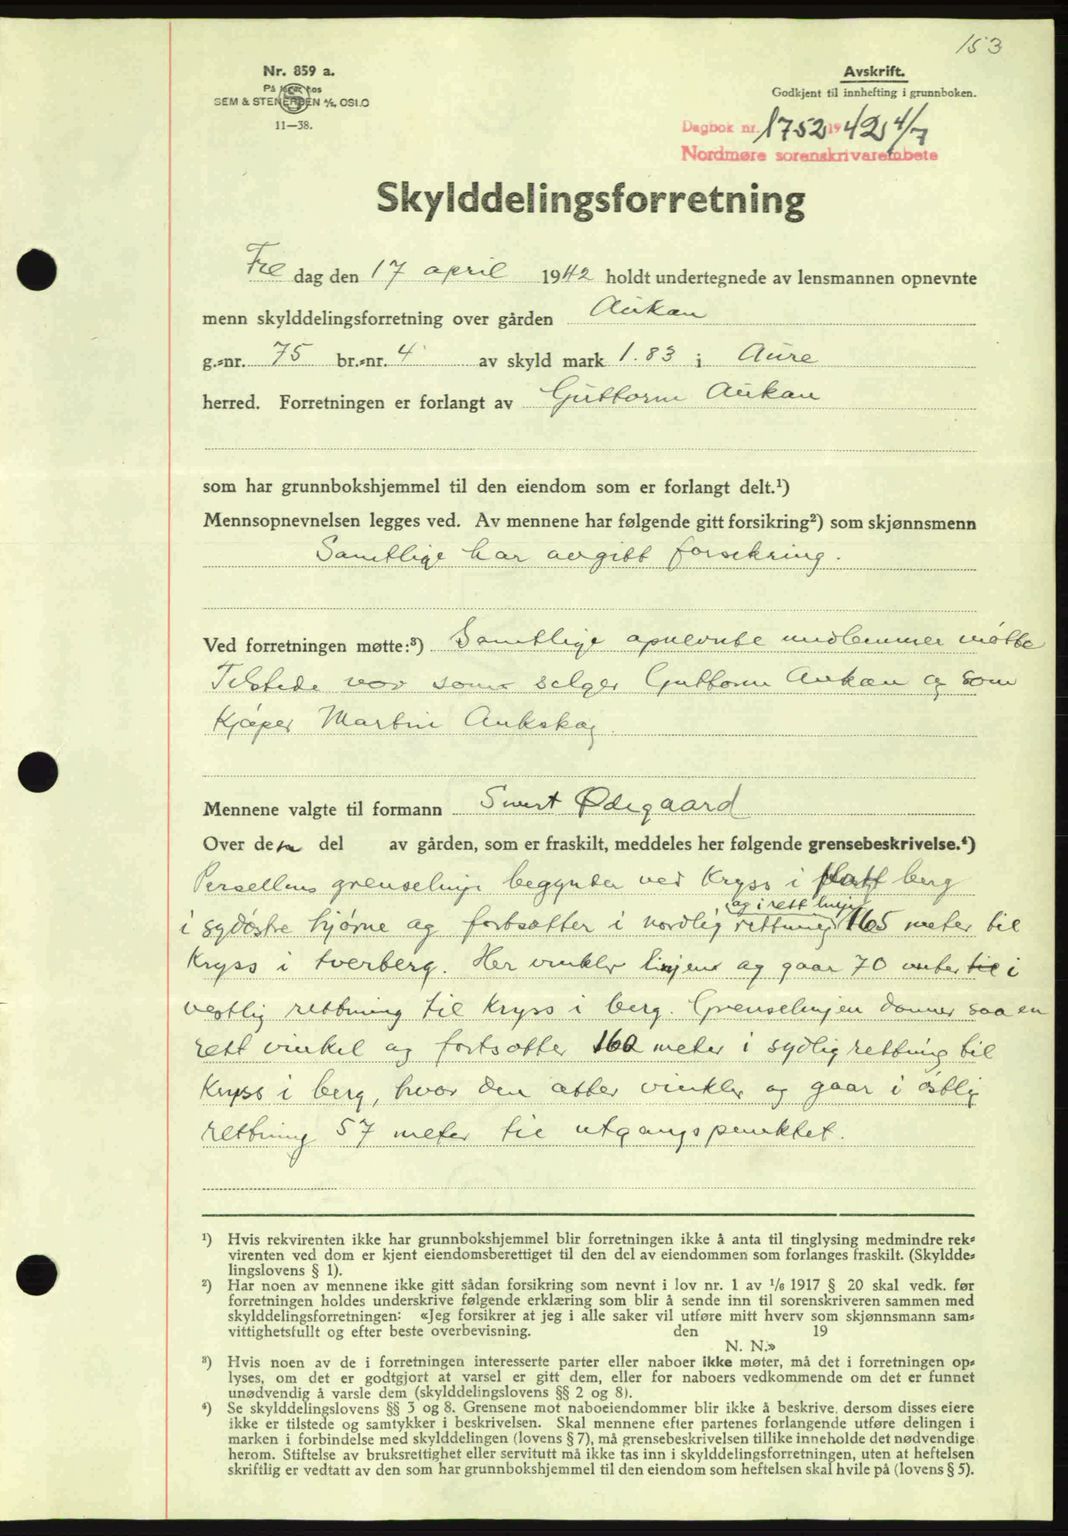 153
Nr. 859 a.
På lager hos
SEM & STENERSEN A/S, OSLO
11—38.
Avskrift.
Godkjent til innhefting i grunnboken.
Dagbok nr. 1752 1942 4/7
Nordmøre sorenskrivarembete
Skylddelingsforretning
Fre dag den 17 april 1942 holdt undertegnede av lensmannen opnevnte
menn skylddelingsforretning over gården Aukan
g.-nr. 75 br.-nr. 4 av skyld mark 1.83 i Aure
herred. Forretningen er forlangt av Guttorm Aukan
som har grunnbokshjemmel til den eiendom som er forlangt delt.¹)
Mennsopnevnelsen legges ved. Av mennene har følgende gitt forsikring²) som skjønnsmenn
Samtlige har avgitt forsikring.
Ved forretningen møtte:³) Samtlige opnevnte medlemmer møtte
Tilstede var som selger Guttorm Aukan og som
Kjøper Martin Aukskag.
Mennene valgte til formann Sivert Ødegaard
Over den del av gården, som er fraskilt, meddeles her følgende grensebeskrivelse.⁴)
Persellens grenselinje begynder ved Kryss i berg
i sydöstre hjörne og fortsætter i nordlig rettning og i rett linje 165 meter til
Kryss i tverberg. Her vinkler linjene og gaar 70 meter til i
vestlig rettning til Kryss i berg. Grenselinjen danner saa en
rett vinkel og fortsætter 160 meter i sydlig rettning til
Kryss i berg, hvor den atter vinkler og gaar i östlig
rettning 57 meter til utgangspunktet.
¹) Hvis rekvirenten ikke har grunnbokshjemmel blir forretningen ikke å anta til tinglysing medmindre rek-
virenten ved dom er kjent eiendomsberettiget til den del av eiendommen som forlanges fraskilt. (Skyldde-
lingslovens § 1).
²) Har noen av mennene ikke gitt sådan forsikring som nevnt i lov nr. 1 av 1/6 1917 § 20 skal vedk. før
forretningen holdes underskrive følgende erklæring som blir å sende inn til sorenskriveren sammen med
skylddelingsforretningen: «Jeg forsikrer at jeg i alle saker vil utføre mitt hverv som skjønnsmann sam-
vittighetsfullt og efter beste overbevisning. den 19
N. N.»
³) Hvis noen av de i forretningen interesserte parter eller naboer ikke møter, må det i forretningen op-
lyses, om det er godtgjort at varsel er gitt dem, eller for naboers vedkommende om det er funnet
unødvendig å varsle dem (skylddelingslovens §§ 2 og 8).
⁴) Se skylddelingslovens §§ 3 og 8. Grensene mot naboeiendommer blir ikke å beskrive, dersom disses eiere
ikke er tilstede og samtykker i beskrivelsen. Skal mennene efter partenes forlangende utføre delingen i
marken i forbindelse med skylddelingen (lovens § 7), må grensebeskrivelsen tillike inneholde det nødvendige
herom. Stiftelse av bruksrettighet eller servitutt må ikke tas inn i skylddelingsforretningen, uten at heftelsen
skriftlig er vedtatt av den som har grunnbokshjemmel til den eiendom som heftelsen skal hvile på (lovens § 5).